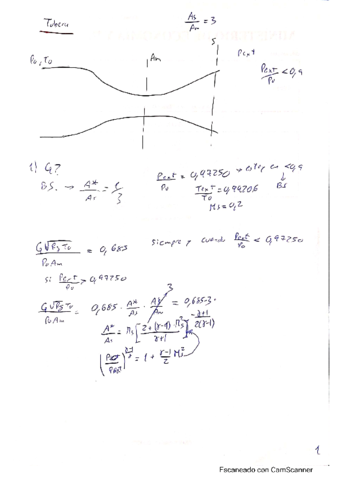 Tobera
As/Am = 3
S
Po, To
Am
Pext
Pext/Po < 0,9
1) G?
B.S. → A*/As = 1/3
Pext/Po = 0,97250 → como es < 0,9
↓
BS
Text/To = 0,99206
Ms = 0,2
G√RgTo / PoAm = 0,685 siempre y cuando Pext/Po < 0,97250
si Pext/Po > 0,97250
G√RgTo / PoAm = 0,685 · A*/As · As/Am = 0,685·3·
3
A*/As = Ms [ (2+(γ-1) Ms²) / (γ+1) ]^-(γ+1)/2(γ-1)
(Po/Pext)^(γ-1)/γ = 1 + (γ-1)/2 Ms²
1
Escaneado con CamScanner